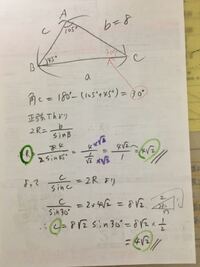 A
b=8
c
105°
30°
B
45°
C
a
角C = 180° - (105°+45°) = 30°
正弦 定理 より
2R = b/sinB
= 4√2/1 = 4√2
よって c/sinC = 2R より
c/sin30° = 2×4√2 = 8√2
∴ c = 8√2 sin30° = 8√2 × 1/2
= 4√2